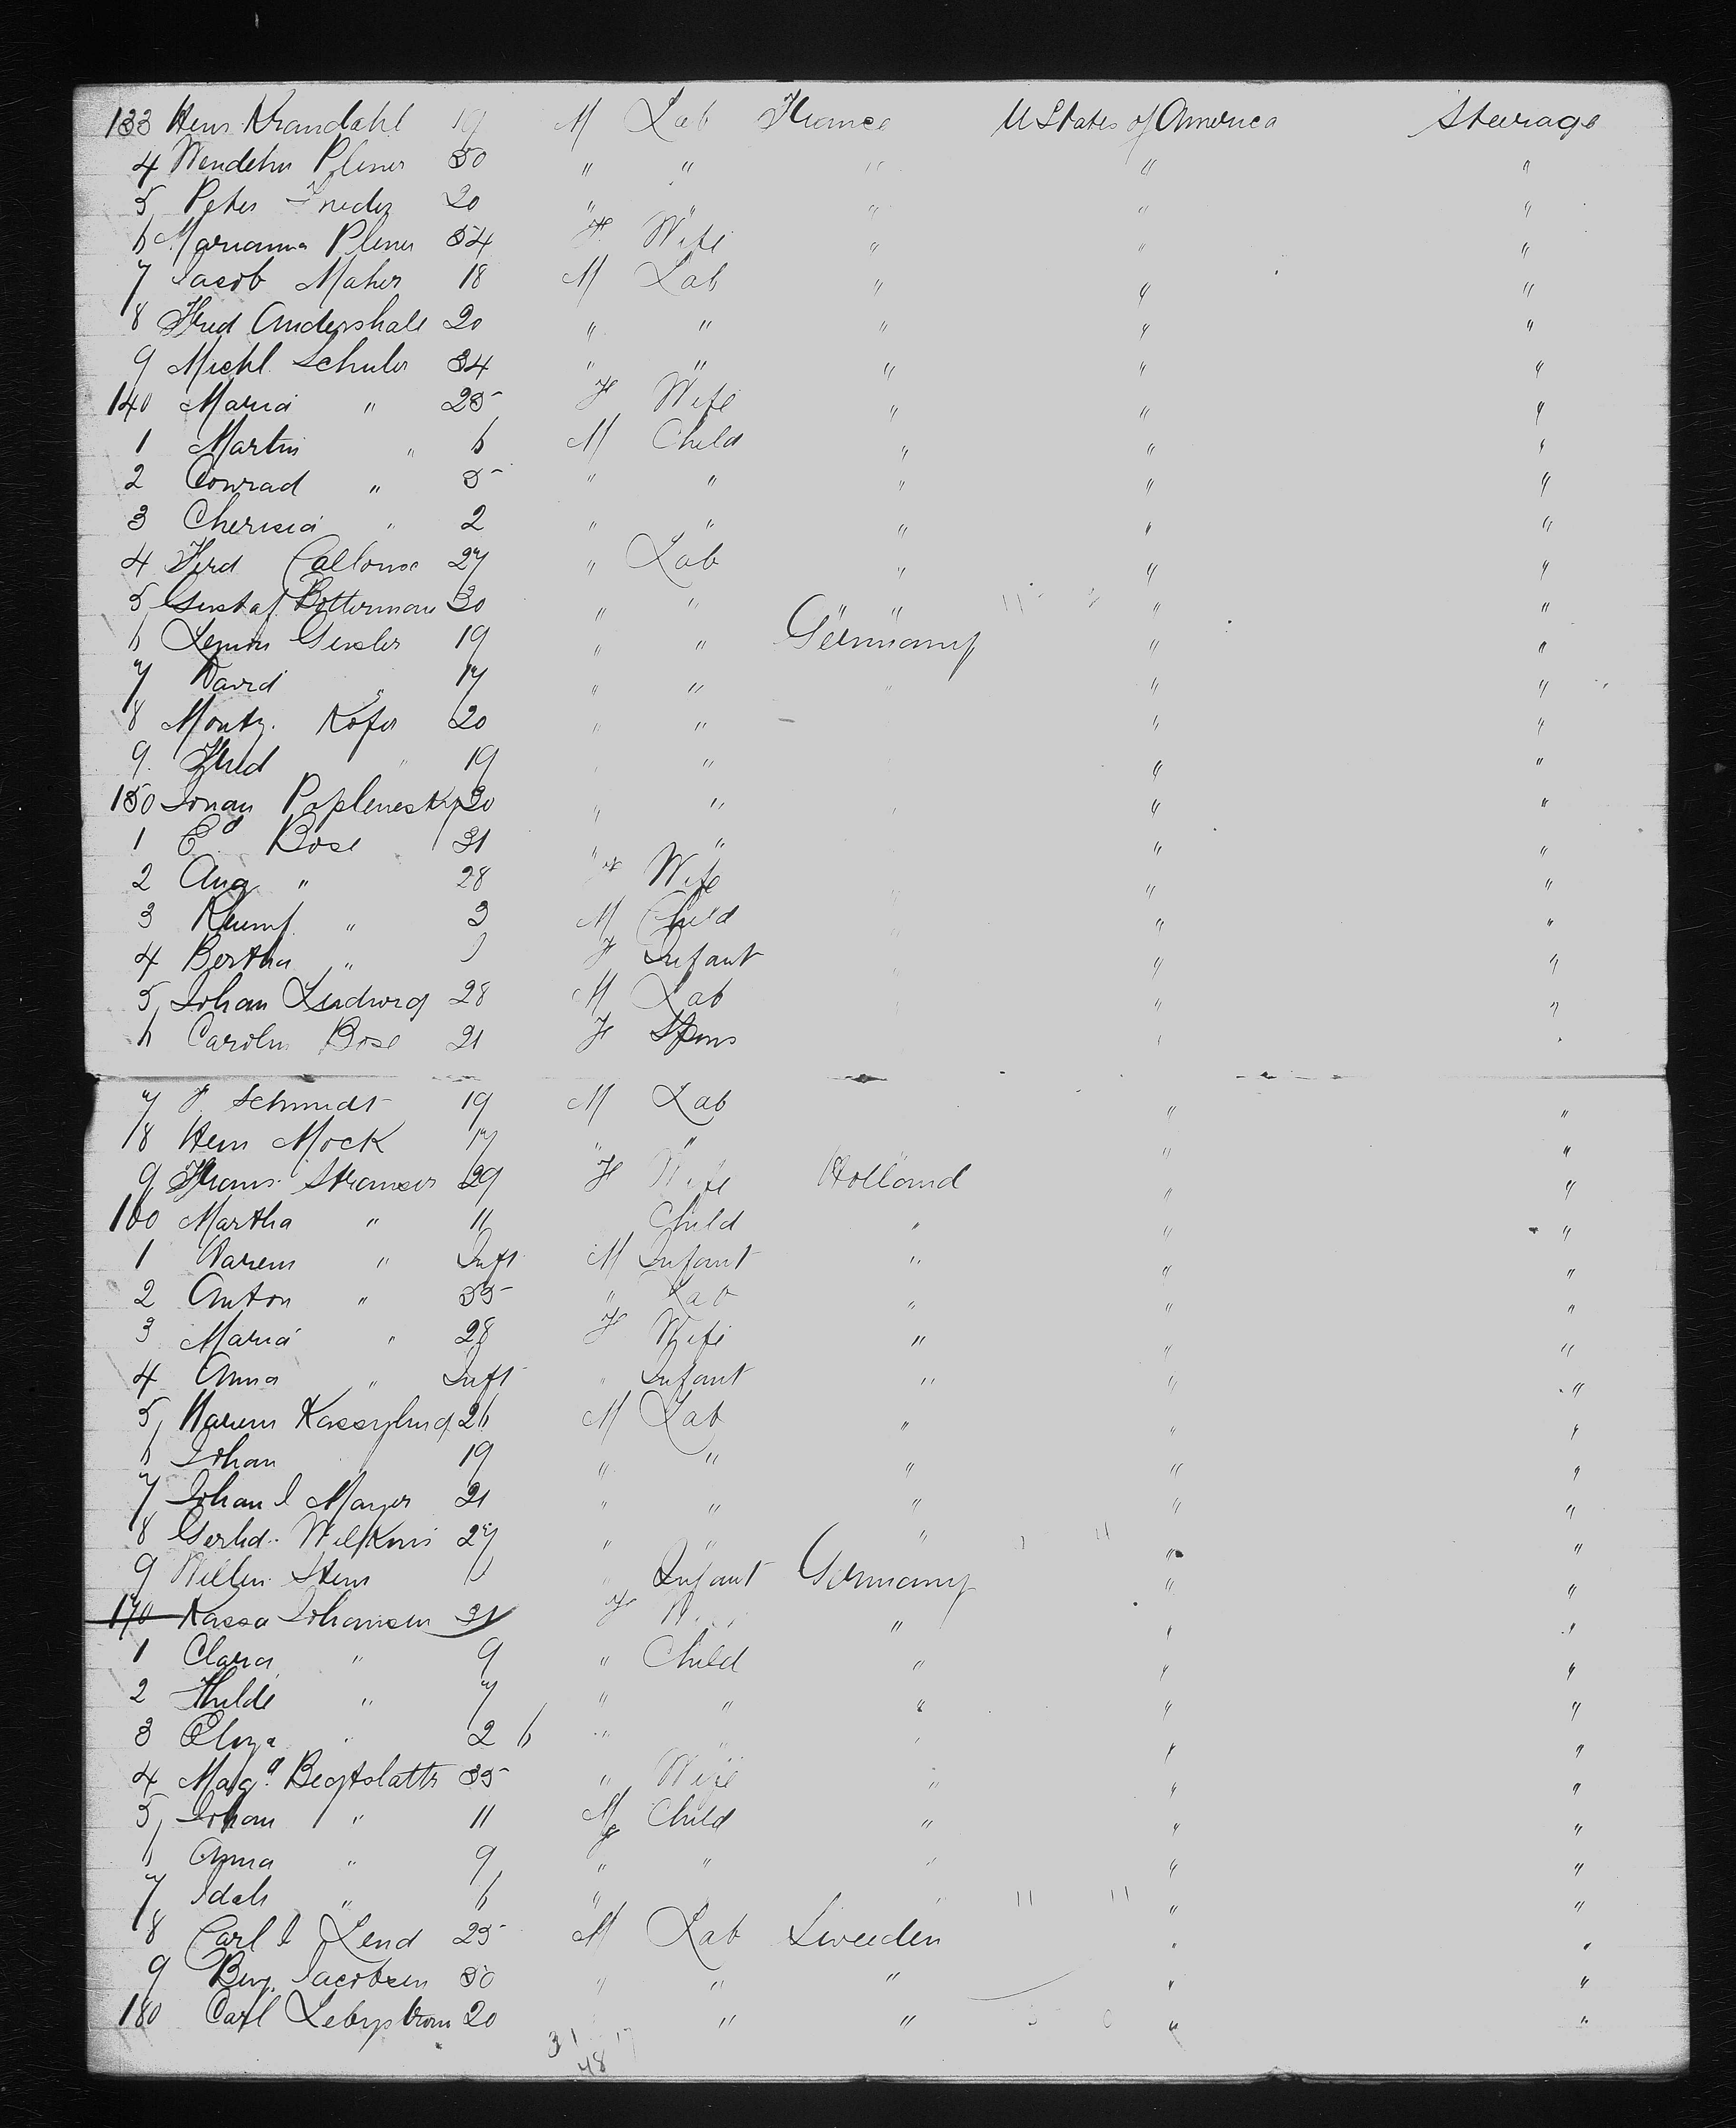 133 Hein Krandahl 19 M Lab France U States of America Steerage
4 Wendelin Plener 50 " " " " "
5 Peter 20 " " " " "
6 Marianna Plener 54 F Wife " " "
7 Jacob Maher 18 M Lab " " "
8 Fred Andershall 20 " " " " "
9 Michl Schuler 34 " " " " "
140 Maria " 25 F Wife " " "
1 Martin " 6 M Child " " "
2 Conrad " 5 " " " " "
3 Cherisia " 2 " " " " "
4 Ferd 27 " Lab " " "
5 Gustaf Botterman 30 " " " " "
6 Geisler 19 " " Germany " "
7 David " 17 " " " " "
8 Montz. Kofer 20 " " " "
9. Fred " 19 " " "
150 Poplenesky 30 " " " "
1 Ed Bose 31 " " " "
2 Aug " 28 F Wife " "
3 " 3 M Child " "
4 Bertha " F Infant " "
5 Johan Ludwig 28 M Lab " "
6 Carolin Bose 21 F Spins " "
7 J. Schmidt 19 M Lab " "
8 Hein Mock 17 " " " "
9 Frans. 29 F Wife Holland " "
160 Martha " 11 Child " " "
1 " Inft M Infant " " "
2 Anton " 35 " Lab " " "
3 Maria " 28 F Wife " " "
4 Anna " Inft " Infant " " "
5 26 M Lab " " "
6 Johan 19 " " " " "
7 Johan J Mayer 21 " " " " "
8 Gerhd. Wilkens 27 " " " " "
9 Stein " Infant Germany " "
170 Kassa Johansen 31 F " " " "
1 Clara " 9 " Child " " "
2 Hilde " 7 " " " " "
3 " 2 6 " " " " "
4 Magd. 35 " Wife " " "
5 Johan " 11 M Child " " "
6 Anna " 9 F " " " "
7 Idah " 6 " " " "
8 Carl J Lend 25 M Lab Sweden " "
9 Benj. Jacobsen 50 " " " " "
180 Carl 20 " " " "
31 17
48